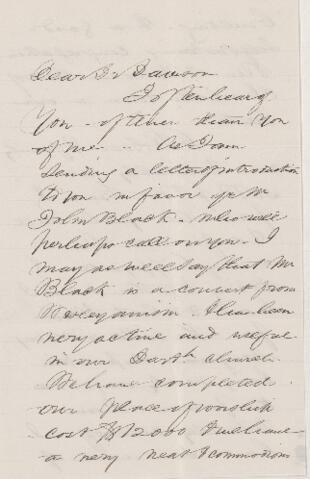 Dear Dr Dawson
I often hear of
you - oftener than you
of me - As I am
sending a letter of introduction
to you in favor of Mr
John Black - who will
perhaps call on you - I
may as well say that Mr
Black is a convert from
has been
very active and useful
in our Church
We have completed
our place of worship
cost $12000 & we have
a very neat & commodious